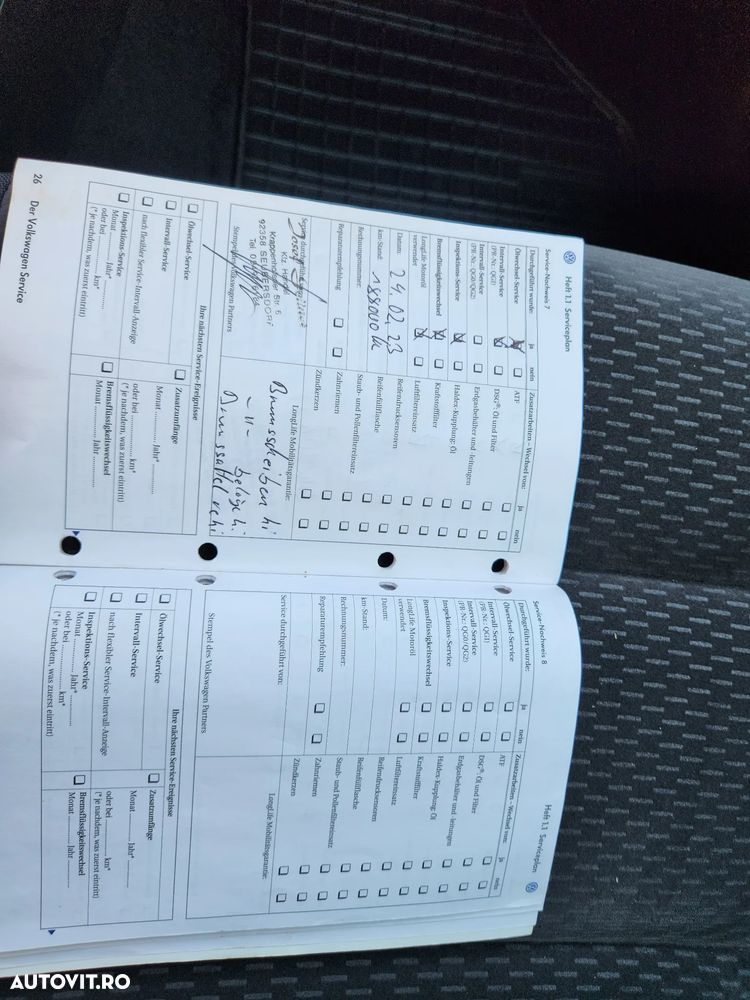 Heft 1.1 Serviceplan
Service-Nachweis 7
Durchgeführt wurde: ja nein
Ölwechsel-Service
Intervall-Service
(PR-Nr.: QG1)
Intervall-Service
(PR-Nr.: QG0/QG2)
Inspektions-Service
Bremsflüssigkeitswechsel
LongLife-Motoröl
verwendet
Datum: 24.02.23
km-Stand: 188000 km
Rechnungsnummer:
Reparaturempfehlung
Service durchgeführt von:
Krappenhofener Str. 5
92358 SEUBERSDORF
Stempel des Volkswagen Partners
Zusatzarbeiten – Wechsel von: ja nein
ATF
DSG®: Öl und Filter
Erdgasbehälter und -leitungen
Haldex-Kupplung: Öl
Kraftstofffilter
Luftfiltereinsatz
Reifendrucksensoren
Reifenfüllflasche
Staub- und Pollenfiltereinsatz
Zahnriemen
Zündkerzen
LongLife Mobilitätsgarantie:
Bremsscheiben hi
-"- beläge hi
Bremssattel re hi
Ihre nächsten Service-Ereignisse
Ölwechsel-Service
Intervall-Service
nach flexibler Service-Intervall-Anzeige
Inspektions-Service
Monat .......... Jahr* ..........
oder bei .......... km*
(* je nachdem, was zuerst eintritt)
Zusatzumfänge
Monat .......... Jahr* ..........
oder bei .......... km*
(* je nachdem, was zuerst eintritt)
Bremsflüssigkeitswechsel
Monat .......... Jahr ..........
26 Der Volkswagen Service
Heft 1.1 Serviceplan
Service-Nachweis 8
Durchgeführt wurde: ja nein
Ölwechsel-Service
Intervall-Service
(PR-Nr.: QG1)
Intervall-Service
(PR-Nr.: QG0/QG2)
Inspektions-Service
Bremsflüssigkeitswechsel
LongLife Motoröl
verwendet
Datum:
km-Stand:
Rechnungsnummer:
Reparaturempfehlung
Service durchgeführt von:
Stempel des Volkswagen Partners
Zusatzarbeiten – Wechsel von: ja nein
ATF
DSG®: Öl und Filter
Erdgasbehälter und -leitungen
Haldex-Kupplung: Öl
Kraftstofffilter
Luftfiltereinsatz
Reifendrucksensoren
Reifenfüllflasche
Staub- und Pollenfiltereinsatz
Zahnriemen
Zündkerzen
LongLife Mobilitätsgarantie:
Ihre nächsten Service-Ereignisse
Ölwechsel-Service
Intervall-Service
nach flexibler Service-Intervall-Anzeige
Inspektions-Service
Monat .......... Jahr* ..........
oder bei .......... km*
(* je nachdem, was zuerst eintritt)
Zusatzumfänge
Monat .......... Jahr* ..........
oder bei .......... km*
(* je nachdem, was zuerst eintritt)
Bremsflüssigkeitswechsel
Monat .......... Jahr ..........
AUTOVIT.RO